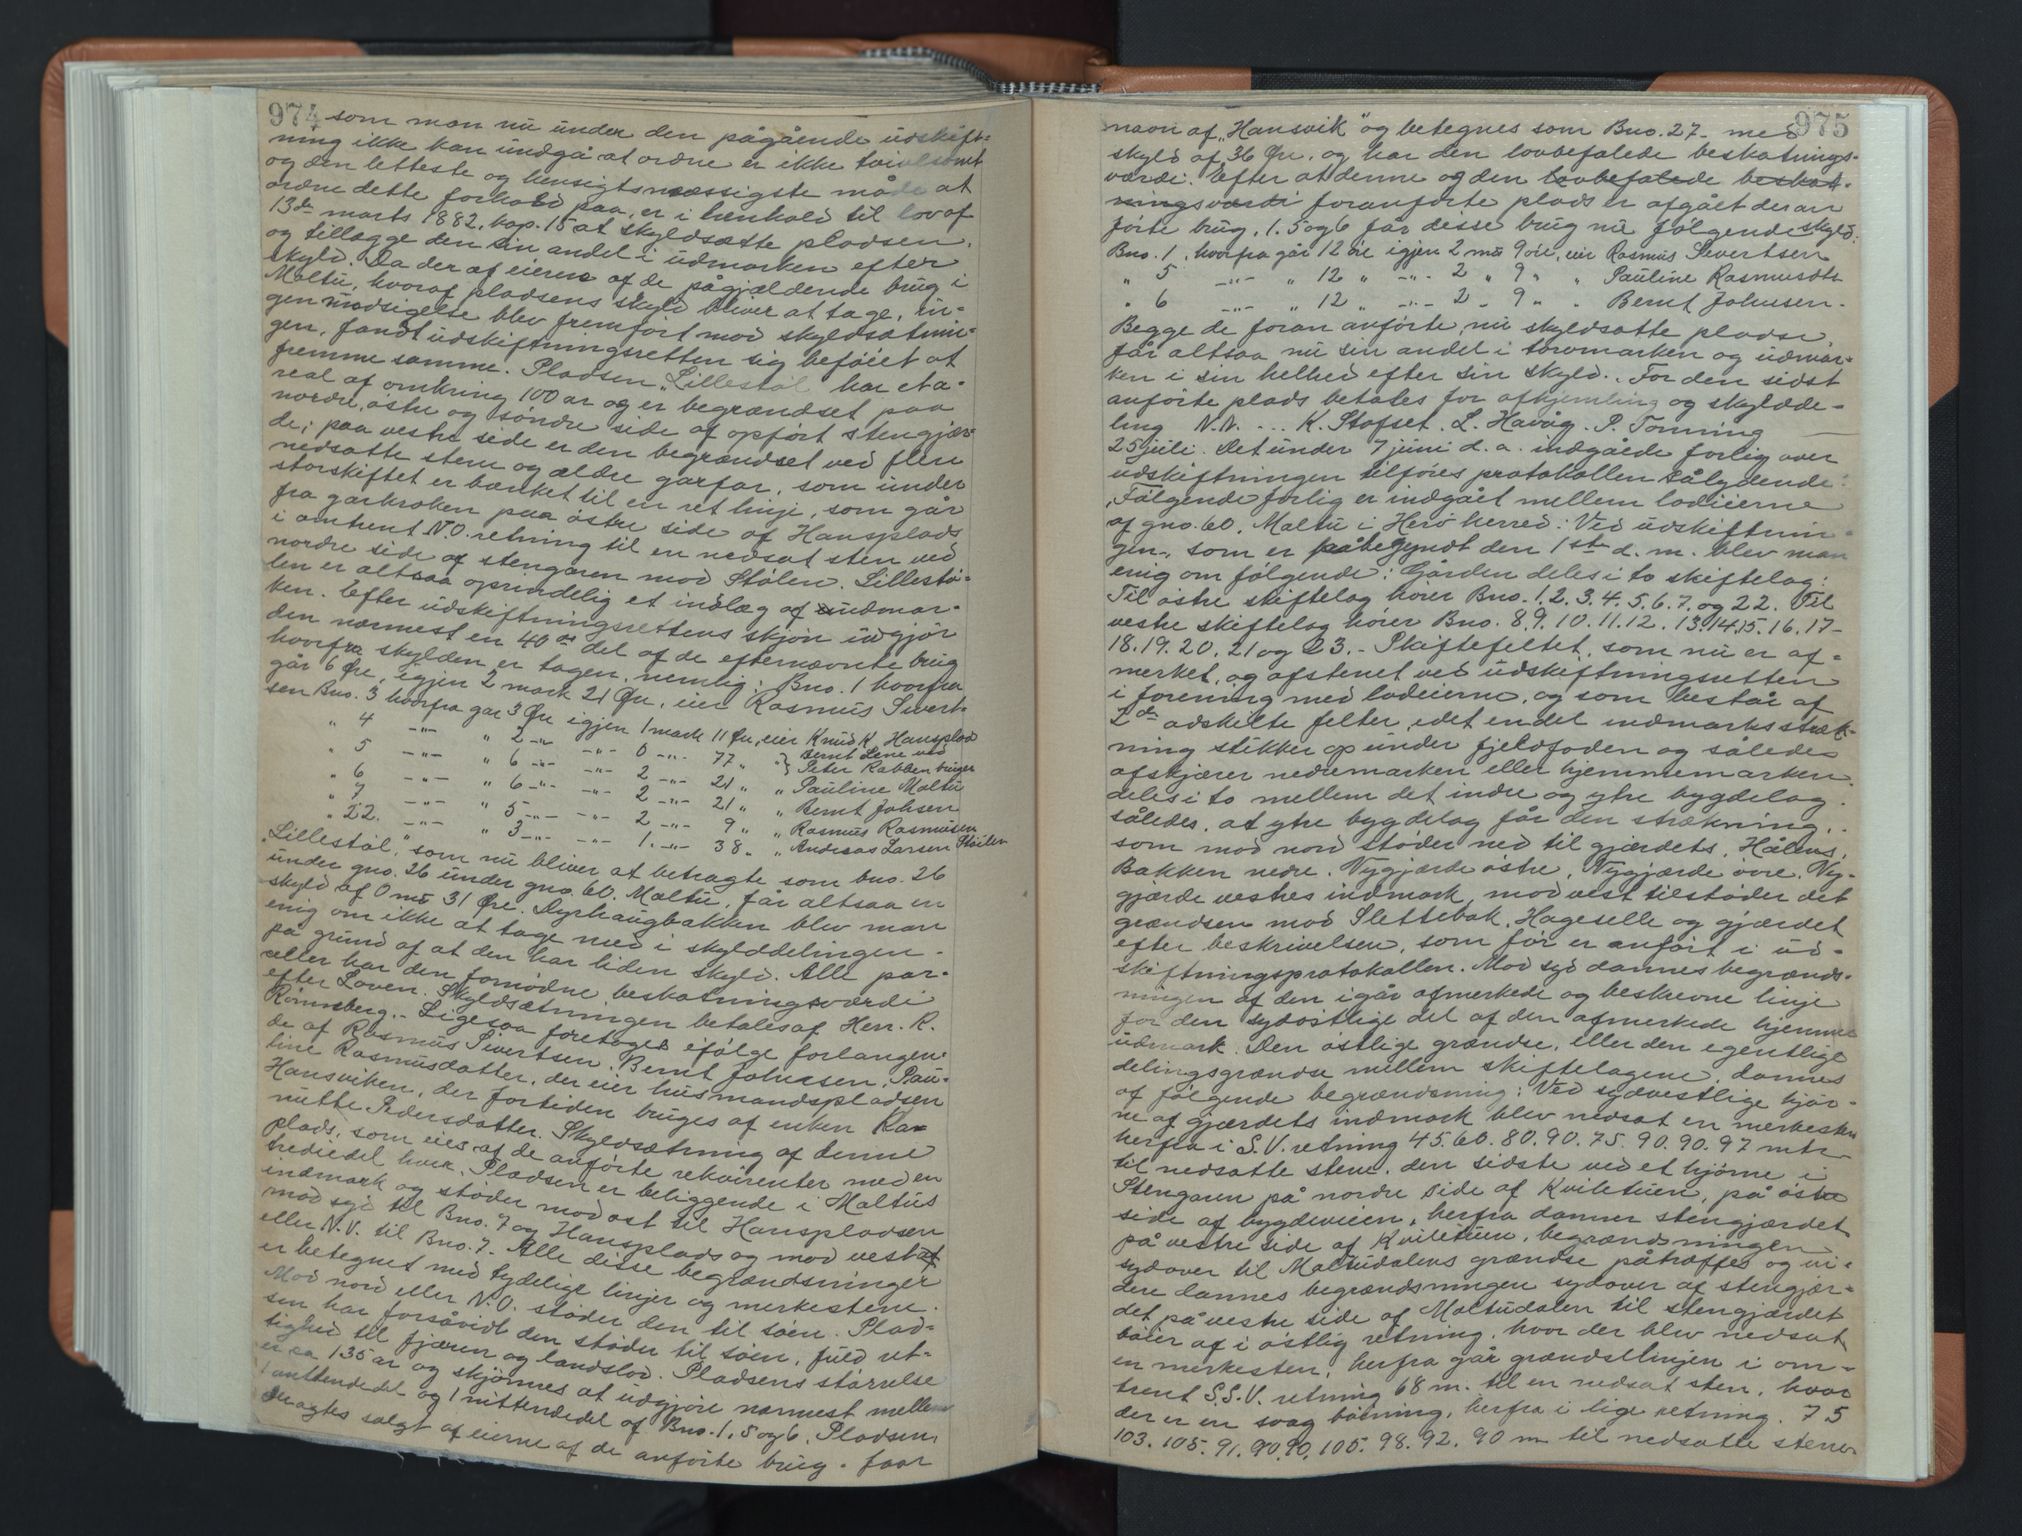 974
som man nu under den pågående udskift-
ning ikke kan undgå at ordne er ikke tvivlsomt
og den letteste og hensigtsmæssigste måde at
ordne dette forhold paa, er i henhold til lov af
13de marts 1882, kap. 15 at skyldsætte pladsen,
og tillægge den sin andel i udmarken efter
skyld. Da der af eierne af de pågjældende brug i
Maltu, hvoraf pladsens skyld bliver at tage, in-
gen modsigelse blev fremført mod skyldsætnin-
gen, fandt udskiftningsretten sig beføiet at
fremme samme. Pladsen "Lillestøl" har et a-
real af omkring 100 ar og er begrændset paa
nordre, østre og søndre side af opført stengjær-
de; paa vestre side er den begrændset ved flere
nedsatte stene og ældre garfar, som under
storskiftet er bænket til en ret linje, som går
fra garkroken paa østre side af Hansplads
i omtrent N.O. retning til en nedsat sten ved
nordre side af stengaren mod Stølen. Lillestø-
len er altsaa oprindelig et indlæg af udmar-
ken. Efter udskiftningsrettens skjøn udgjør
den nærmest en 40de del af de efternævnte brug
hvorfra skylden er tagen, nemlig: Bno. 1 hvorfra
går 6 Øre, igjen 2 mark 21 Øre, eier Rasmus Sivert-
sen Bno. 3 hvorfra gar 3 Øre igjen 1 mark 11 Øre, eier Knud K. Hansplads
" 4 -"- " 2 -"- -"- 0 -"- 77 " " } Bernt Lene ved Peter Rabben bruger
" 5 -"- " 6 -"- -"- 2 -"- 21 " " Pauline Maltu
" 6 -"- " 6 -"- -"- 2 -"- 21 " " Bernt Johsen
" 7 -"- " 5 -"- -"- 2 -"- 9 " " Rasmus Rasmusen
" 22. -"- " 3 -"- -"- 1. -"- 38 " " Andreas Larsen Støilen
"Lillestøl", som nu bliver at betragte som bno. 26
under gno. 26 under gno. 60. Maltu, får altsaa en
skyld af 0 m 31 Øre. Dyrhaugbakken blev man
enig om ikke at tage med i skylddelingen -
på grund af at den har liden skyld. Alle par-
celler har den fornødne beskatningsværdi
efter Loven. Skyldsætningen betales af Herr. R.
Rønneberg. - Ligesaa foretoges ifølge forlangen-
de af Rasmus Sivertsen, Bernt Johnsen, Pau-
line Rasmusdatter, der eier husmandspladsen
Hansviken, der fortiden bruges af enken Ra-
nutte Pedersdatter. Skyldsætning af denne
plads, som eies af de anførte rekvirenter med en
trediedel hver. Pladsen er beliggende i Maltus
indmark og støder mod øst til Hanspladsen
mod syd til Bno. 7 og Hansplads og mod vest
eller N.V. til Bno. 7. Alle disse begrændsninger
er betegnet med tydelige linjer og merkestene.
Mod nord eller N.O. støder den til søen. Plad-
sen har forsåvidt den støder til søen, fuld ret-
tighed til fjæren og landslod. Pladsens størrelse
er ca 135 ar og skjønnes at udgjøre nærmest mellem
1 attendedel og 1 nittendedel af Bno. 1, 5 og 6. Pladsen
deragtes solgt af eierne af de anførte brug. faar
975
navn af "Hansvik" og betegnes som Bno. 27 - med
skyld af 36 Øre, og har den lovbefalede beskatnings-
værdi. Efter at denne og den lovbefalede beskat-
ningsværdi foranførte plads er afgået deran
førte brug, 1. 5 og 6 får disse brug nu følgende skyld:
Bno. 1, hvorfra går 12 øre igjen 2 m 9 øre, eier Rasmus Sivertsen
" 5 -"- " 12 " -"- 2 " 9 " " Pauline Rasmusdtr
" 6 -"- " 12 " -"- 2 - 9 " " Bernt Johnsen -
Begge de foran anførte, nu skyldsatte pladse,
får altsaa nu sin andel i torvmarken og udmar-
ken i sin helhed efter sin skyld. For den sidst
anførte plads betales for afhjemling og skyldde-
ling N.N. ... K. Stofset. L. Havåg. P. Tonning
25 juli. Det under 7 juni d. a. indgåede forlig over
udskiftningen tilføies protokollen sålydende:
"Følgende forlig er indgået mellem lodeierne
af gno. 60, Maltu i Herø herred: Ved udskiftnin-
gen, som er påbegyndt den 1ste d. m. blev man
enig om følgende: Gården deles i to skiftelag:
Til østre skiftelag hører Bno. 1. 2. 3. 4. 5. 6. 7. og 22. Til
vestre skiftelag hører Bno. 8. 9. 10. 11. 12. 13. 14. 15. 16. 17-
18. 19. 20. 21 og 23. - Skiftefeltet, som nu er af-
merket, og afstenet ved udskiftningsretten
i forening med lodeierne, og som består af
2de adskilte felter, idet en del indmarksstræk-
ning stikker op under fjeldfoden og således
afskjærer nedremarken eller hjemmemarken
deles i to mellem det indre og ytre bygdelag.
således, at ytre bygdelag får den strækning,
som mod nord støder ned til gjærdets, Hålens,
Bakken nedre, Nygjærde østre, Nygjærde øvre, Ny-
gjærde vestres indmark, mod vest tilstøder det
grændsen mod Slettebak, Hageselle og gjærdet
efter beskrivelsen, som før er anført i ud-
skiftningsprotokollen. Mod syd dannes begrænds-
ningen af den igår afmerkede og beskrevne linje
for den sydøstlige del af den afmerkede hjemme
udmark. Den østlige grændse, eller den egentlige
delingsgrændse mellem skiftelagene, dannes
af følgende begrændsning: Ved sydvestlige hjør-
ne af gjærdets indmark blev nedsat en merkesten
herfra i S.V. retning 45. 60. 80. 90. 75. 90. 90. 97 mtr
til nedsatte stene. den sidste ved et hjørne i
Stengaren på nordre side af Kviletuen, på østre
side af bygdeveien, herfra danner stengjærdet
på vestre side af Kviletuen, begrændsningen
sydover til Maltudalens grændse påtræffes og vi-
dere dannes begrændsningen sydover af stengjær-
det på vestre side af Maltudalen til stengjærdet
bøier af i østlig retning, hvor der blev nedsat
en merkesten, herfra går grændselinjen i om-
trent S.S.V. retning 68 m. til en nedsat sten, hvor
der er en svag bøining, herfra i lige retning. 75
103. 105. 91. 90. 90. 105. 98. 92. 90 m til nedsatte stene